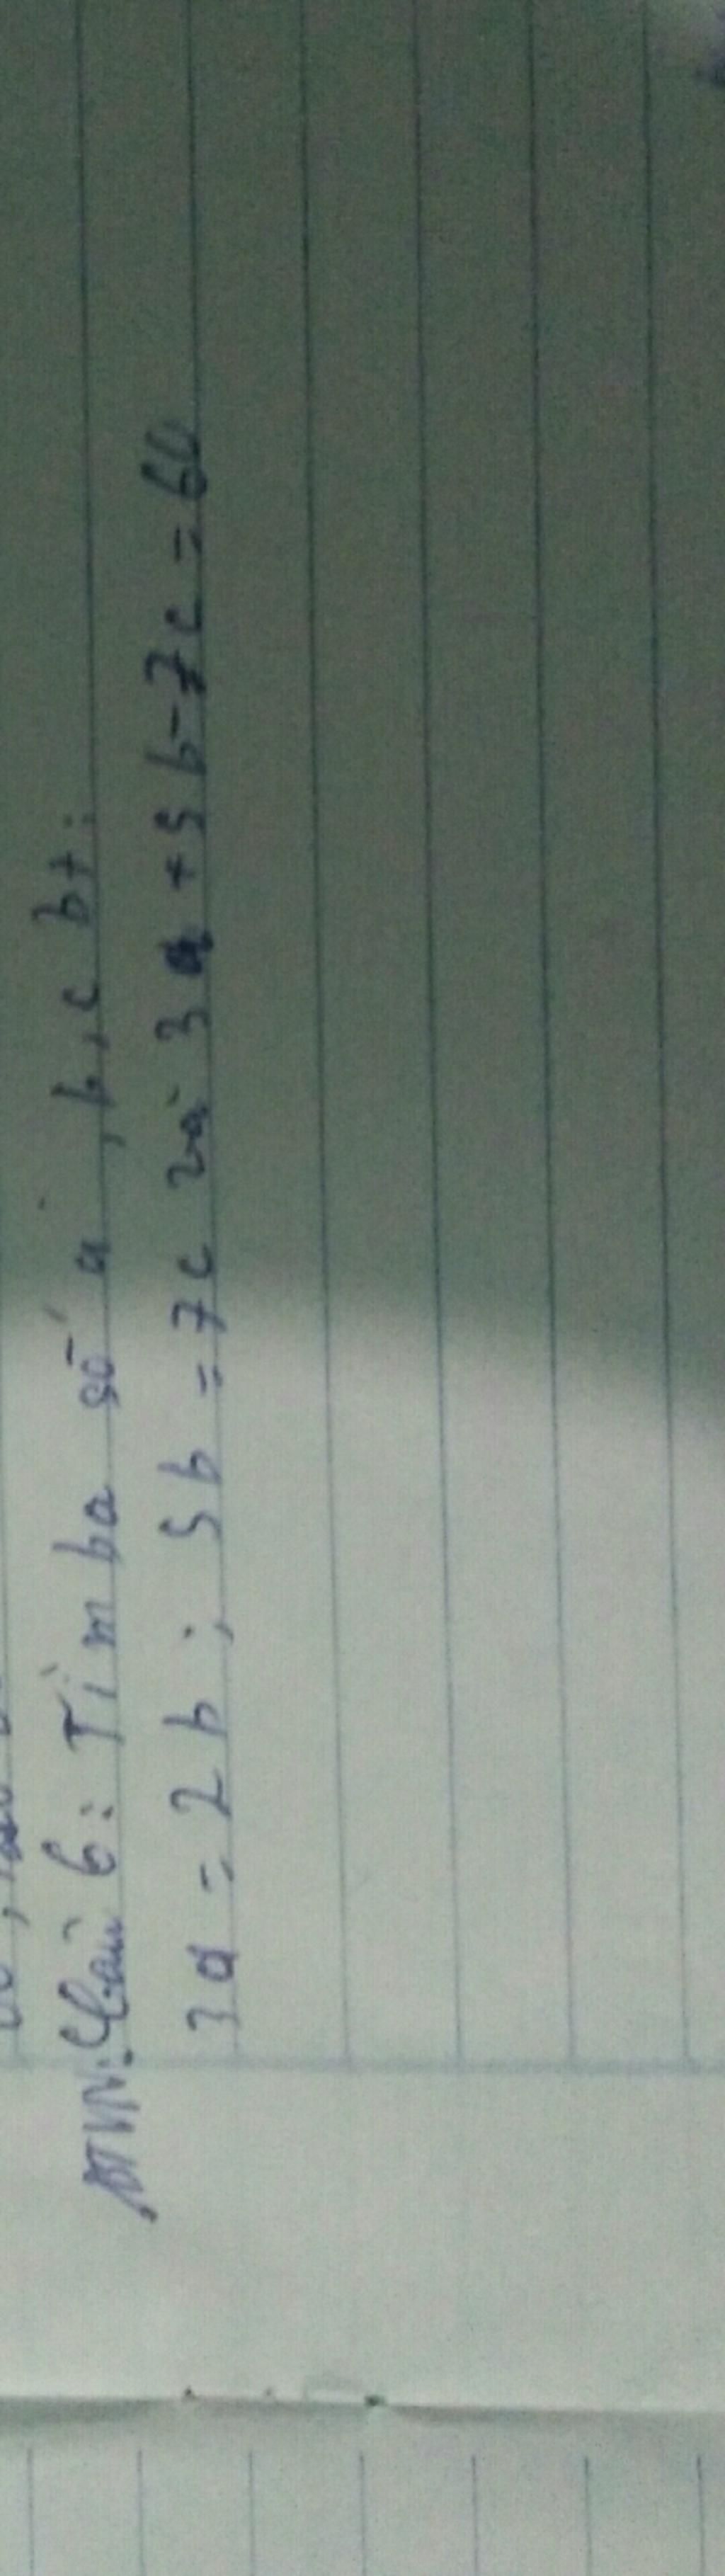 BTVN: Câu 6: Tìm ba số a, b, c bt:
3a = 2b; 5b = 7c và 3a + 5b - 7c = 60